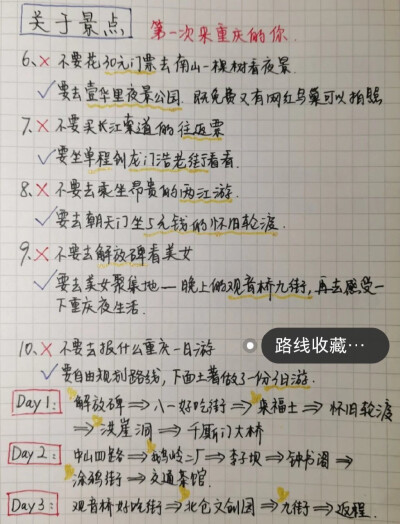 关于景点 第一次来重庆的你
6、× 不要花30元门票去南山一棵树看夜景
✓要去壹华里夜景公园. 既免费又有网红鸟巢可以拍照
7、× 不要买长江索道的往返票
✓要坐单程到龙门浩老街看看.
8、× 不要去乘坐昂贵的两江游.
✓要去朝天门坐5元钱的怀旧轮渡.
9、× 不要去解放碑看美女
✓要去美女聚集地—晚上的观音桥九街, 再去感受一
下重庆夜生活.
10、× 不要去报什么重庆一日游
路线收藏…
✓要自由规划路线, 下面土著做了一份3日游.
Day1: 解放碑⇒八一好吃街⇒来福士⇒怀旧轮渡
⇒洪崖洞⇒千厮门大桥
Day2: 中山四路⇒鹅岭二厂⇒李子坝⇒钟书阁⇒
涂鸦街⇒交通茶馆.
Day3: 观音桥好吃街⇒北仓文创园⇒九街⇒返程.